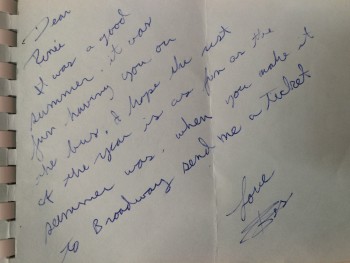 Dear
Ronie
It was a good
summer. it was
fun having you on
the bus. I hope the rest
of the year is as fun as the
summer was. when you make it
to Broadway send me a ticket
Love